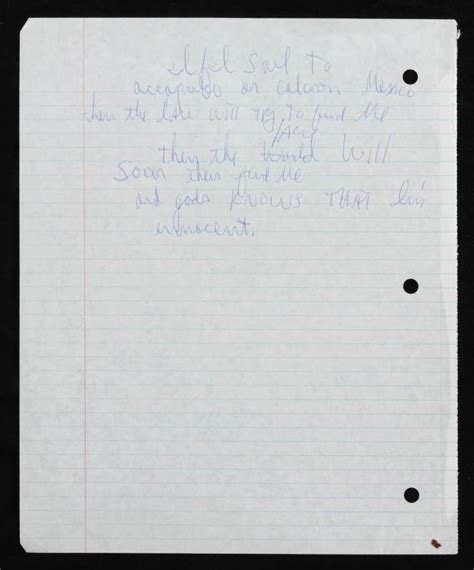 Sail to
accapulco or cancoon Mexico
then the law will try to find Me
then the World Will
Soon then find Me
and gods KNOWS THAT I'm
innocent.